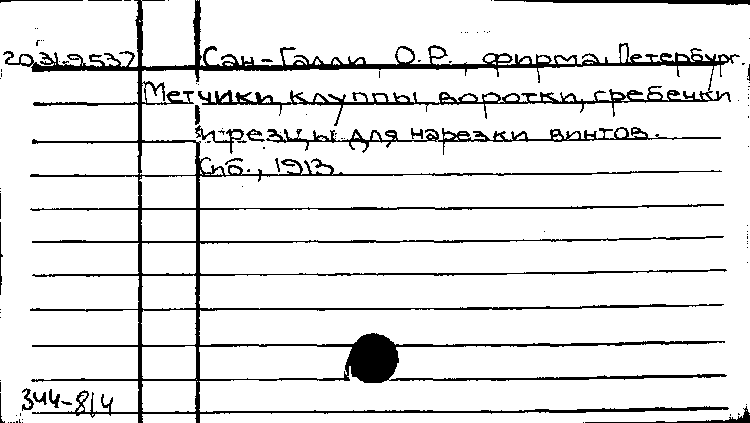 20.31.9.537 Сан-Галли О.Р., фирма, Петербург.
Метчики, клуппы, воротки, гребенки
и резцы для нарезки винтов.
Спб., 1913.
344-8/4